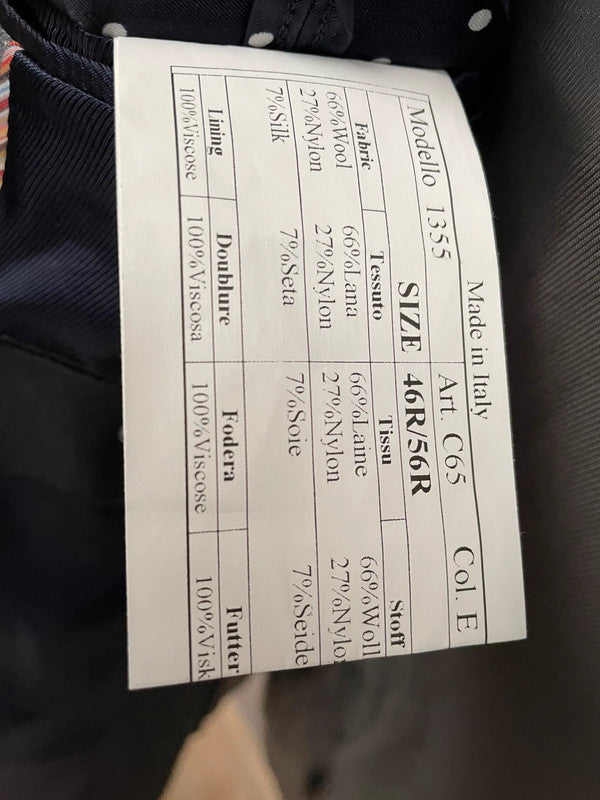 Made in Italy
Modello 1355 Art. C65 Col. E
SIZE 46R/56R
Fabric Tessuto Tissu Stoff
66%Wool 66%Lana 66%Laine 66%Woll
27%Nylon 27%Nylon 27%Nylon 27%Nylo
7%Silk 7%Seta 7%Soie 7%Seide
Lining Doublure Fodera Futter
100%Viscose 100%Viscosa 100%Viscose 100%Visk